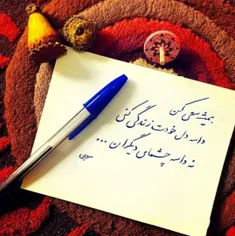 همیشه سعی کن
واسه دل خودت زندگی کنی
نه واسه چشمای دیگران ...